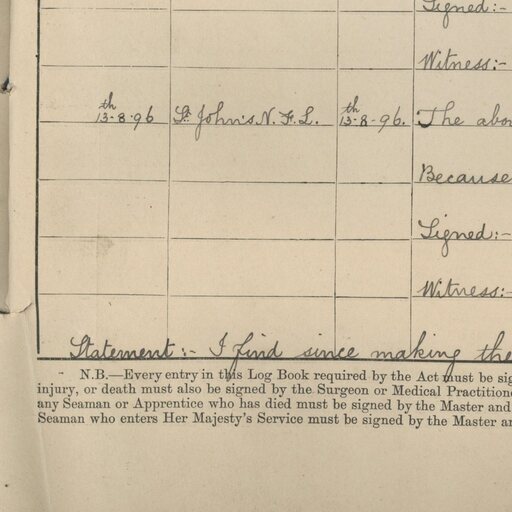 Signed:-
Witness:-
13th-8-96 St. John's N.F.L. 13th-8-96. The abo
Because
Signed:-
Witness:-
Statement:- I find since making the
N.B.—Every entry in this Log Book required by the Act must be sig
injury, or death must also be signed by the Surgeon or Medical Practitione
any Seaman or Apprentice who has died must be signed by the Master and
Seaman who enters Her Majesty's Service must be signed by the Master an